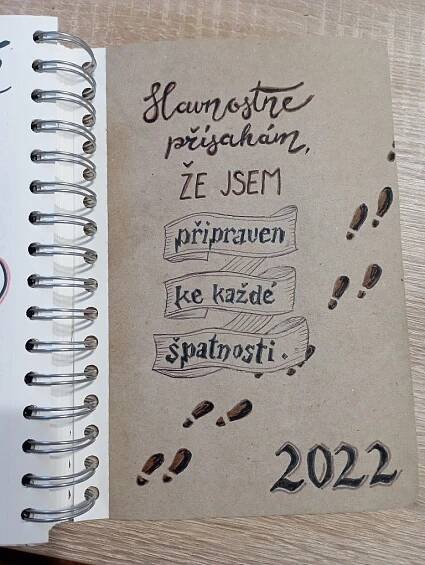 Slavnostne
přísahám,
ŽE JSEM
připraven
ke každé
špatnosti.
2022